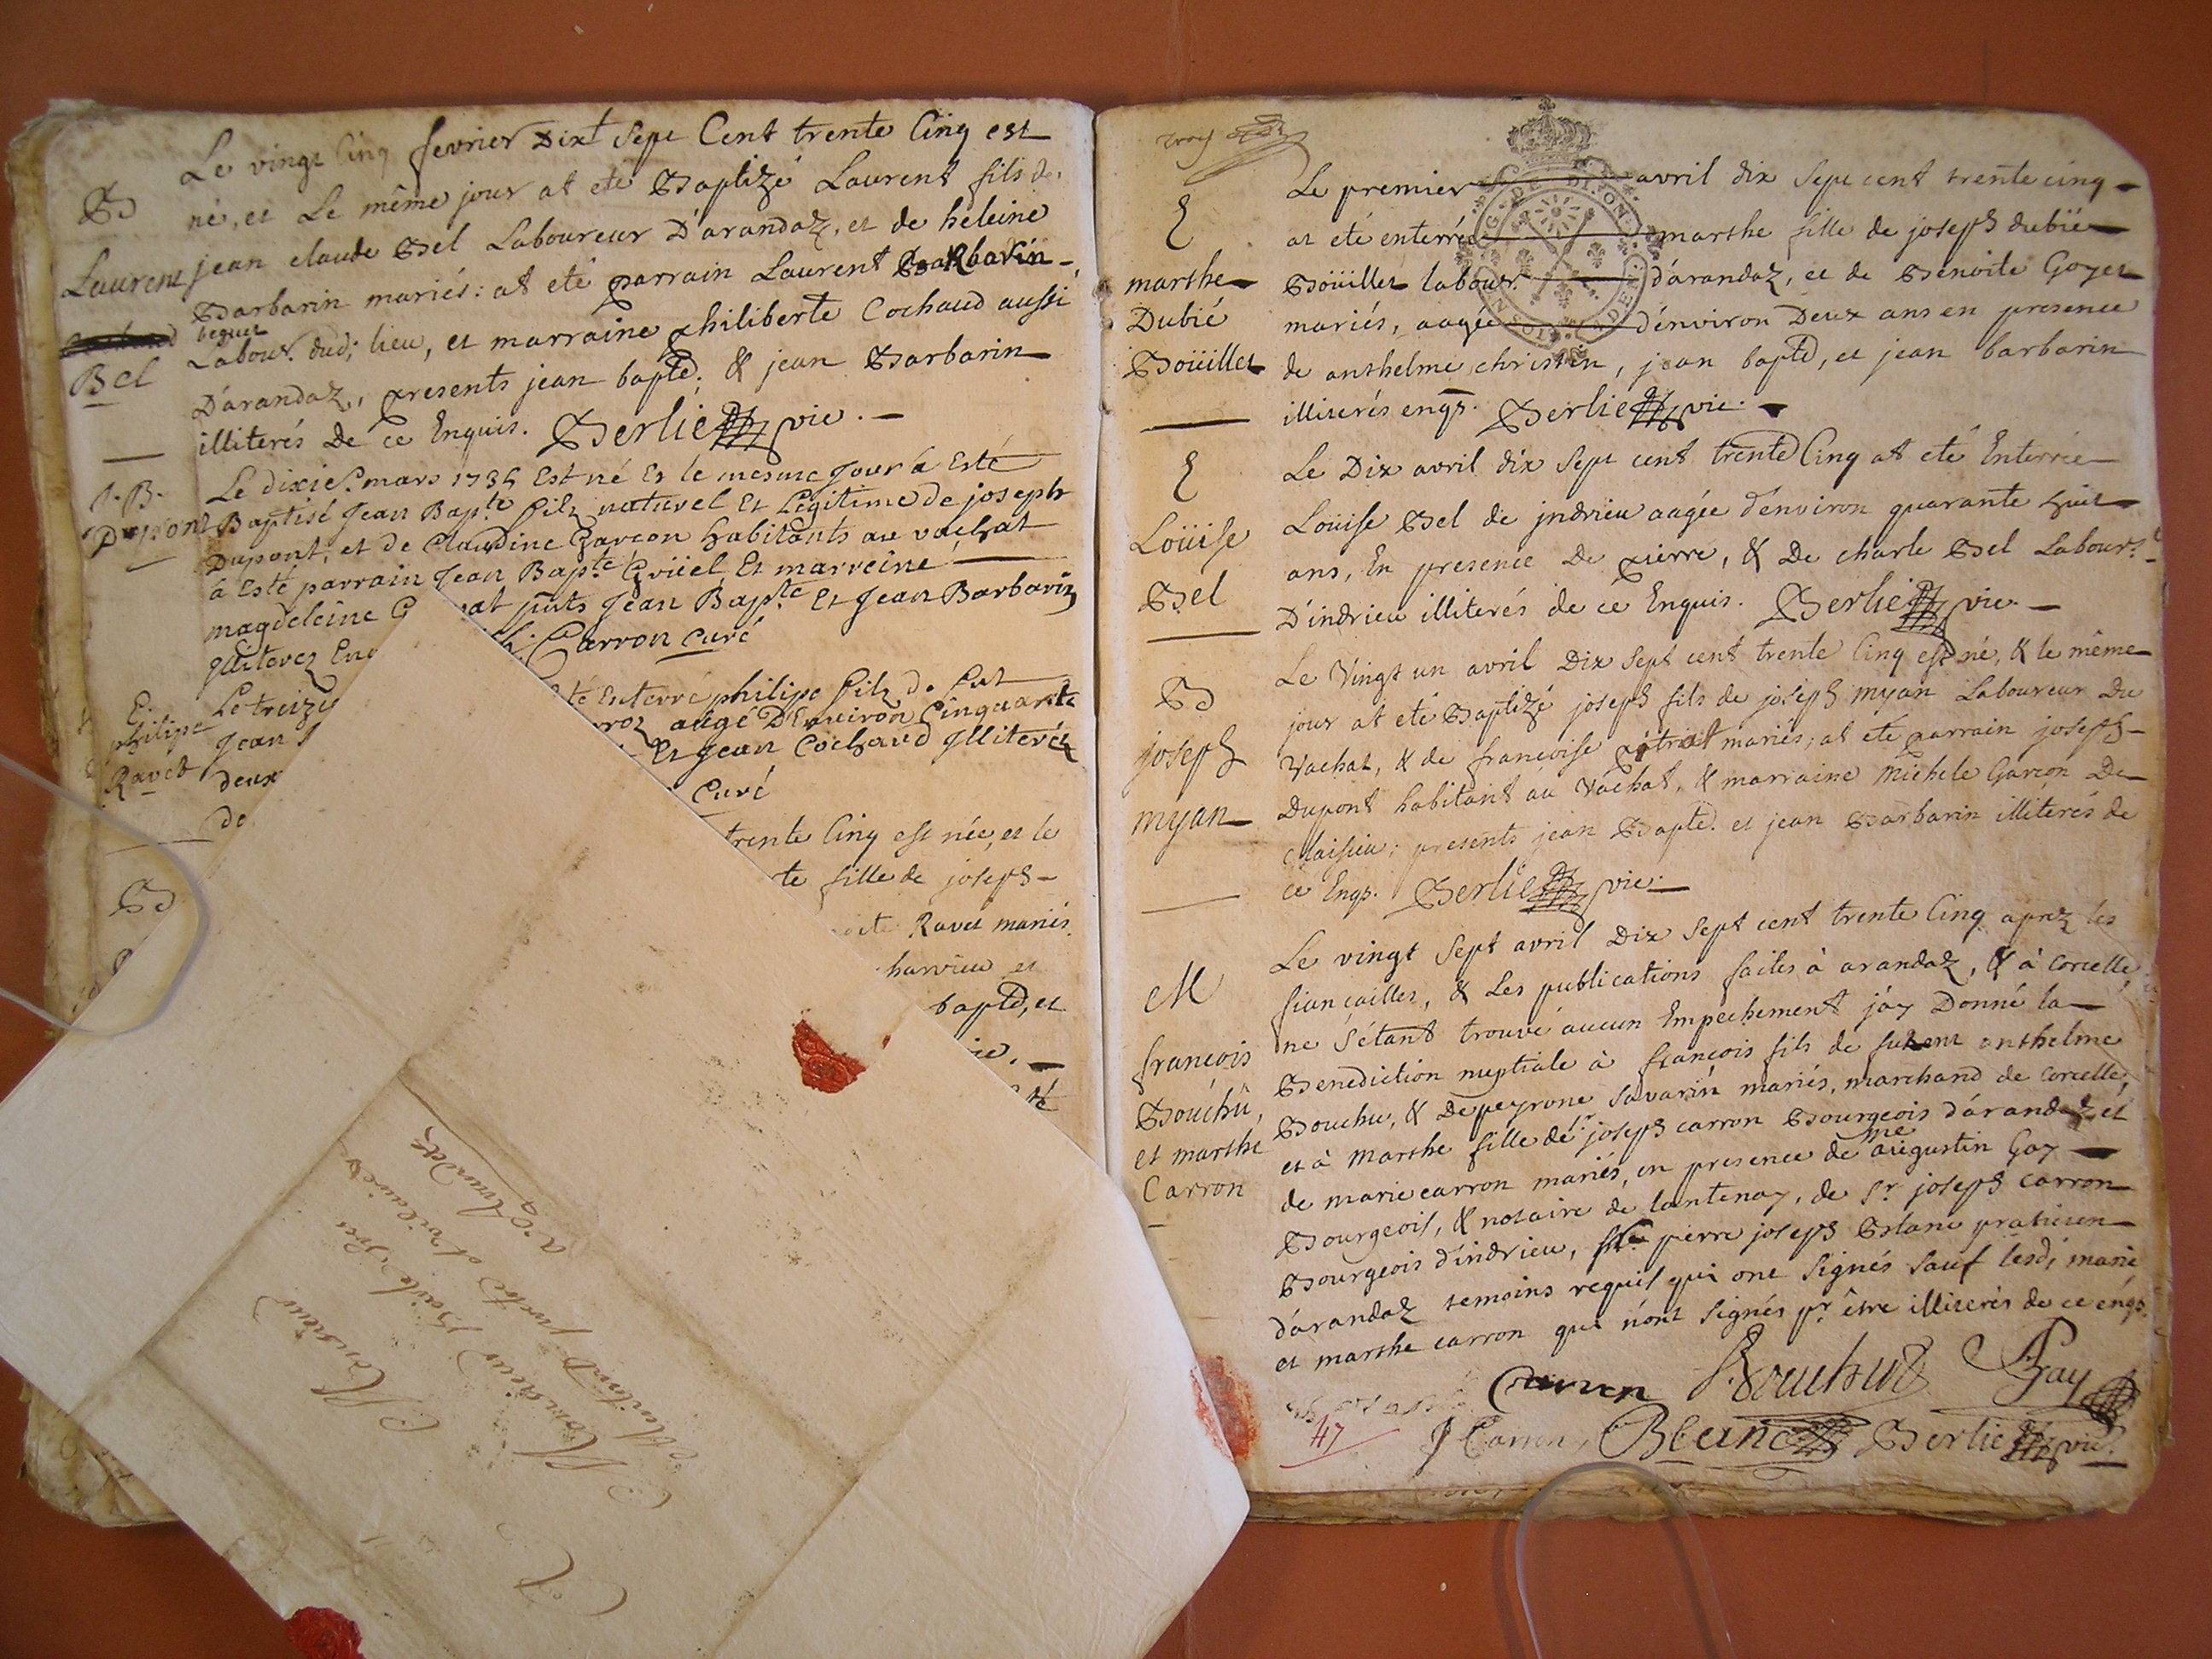 Le vingt Cinq fevrier Dixt Sept Cent trente Cinq est
né, et Le même jour at eté Baptizé Laurent fils de
jean claude Bel Laboureur D'arandaz, et de heleine
Barbarin mariés: at eté parrain Laurent Barbarin
beguet
Labour. dud; lieu, et marraine philiberte Cochaud aussi
D'arandaz, presents jean baptē. & jean Barbarin
illiterés De ce Enquis. Berlie vic.
B
Laurent
Bel
Le dixiè. mars 1735 Est né Et le mesme Jour à Esté
Baptisé Jean Bap.te filz naturel Et Legitime de joseph
Dupont, et de Claudine Garcon habitants au vachat
à Esté parrain Jean Bap.te Grüel Et marreine
magdeleine G
at pnts Jean Bap.te Et Jean Barbarin
Illiterez Enq
Carron curé
J. B.
Dupont
Le treizie
té Enterré philipe filz de fut
Jean
roz augé D'Environ Cinquante
deux
Et Jean Cochaud Illiteréz
de
Curé
E.
philipe
Ravet
B
trente Cinq est née, et le
te fille de joseph
Ravet mariés
harvieu et
baptē, et
ie.
té
Monsieur
Monsieur
a Arandaz
troy
Le premier avril dix Sept cent trente cinq
at eté enterrée marthe fille de joseph dubié
Boüillet labour. d'arandaz, et de Benoite Goyet
mariés, aagée d'énviron Deux ans en presence
de anthelme christin, jean baptē, et jean barbarin
illiterés enqs. Berlie vic.
E
marthe
Dubié
Boüillet
G. DE DIJON
Le Dix avril dix Sept cent trente Cinq at eté Enterrée
Loüise Bel de jndrieu aagée d'énviron quarante huit
ans, En presence De pierre, & De charle Bel Labours.
D'indrieu illiterés de ce Enquis. Berlie vic.
E
Loüise
Bel
Le Vingt un avril Dix Sept cent trente Cinq est né, & le même
jour at eté Baptizé joseph fils de joseph myan Laboureur Du
Vachat, & de francoise pétrat mariés; at eté parrain joseph
Dupont habitant au Vachat, & marraine Michele Garcon De
claisieu; presents jean Baptē. et jean Barbarin illiterés de
ce Enqs. Berlie vic.
B
joseph
myan
Le vingt Sept avril Dix Sept cent trente Cinq aprez les
fiancailles, & Les publications faites à arandaz, & à Corcelle,
ne S'étant trouvé aucun Empechement j'ay Donné la
Benediction nuptiale à francois fils de furent anthelme
Bouchu, & De peyrone Savarin mariés, marchand de Corcelle,
et à Marthe fille de Sr joseph carron Bourgeois d'arandaz et
de marie carron mariés, en presence de me augustin Gay
Bourgeois, & notaire de lantenay, de Sr. joseph Carron
Bourgeois d'indrieu, pierre joseph Blanc praticien
d'arandaz temoins requis qui ont Signés Sauf lesd; marie
et marthe carron qui n'ont Signés pr. être illiterés de ce énqs.
M
francois
Bouchu,
et marthe
Carron
Carron Bouchu Gay
J Carron, Blanc Berlie vic.
47